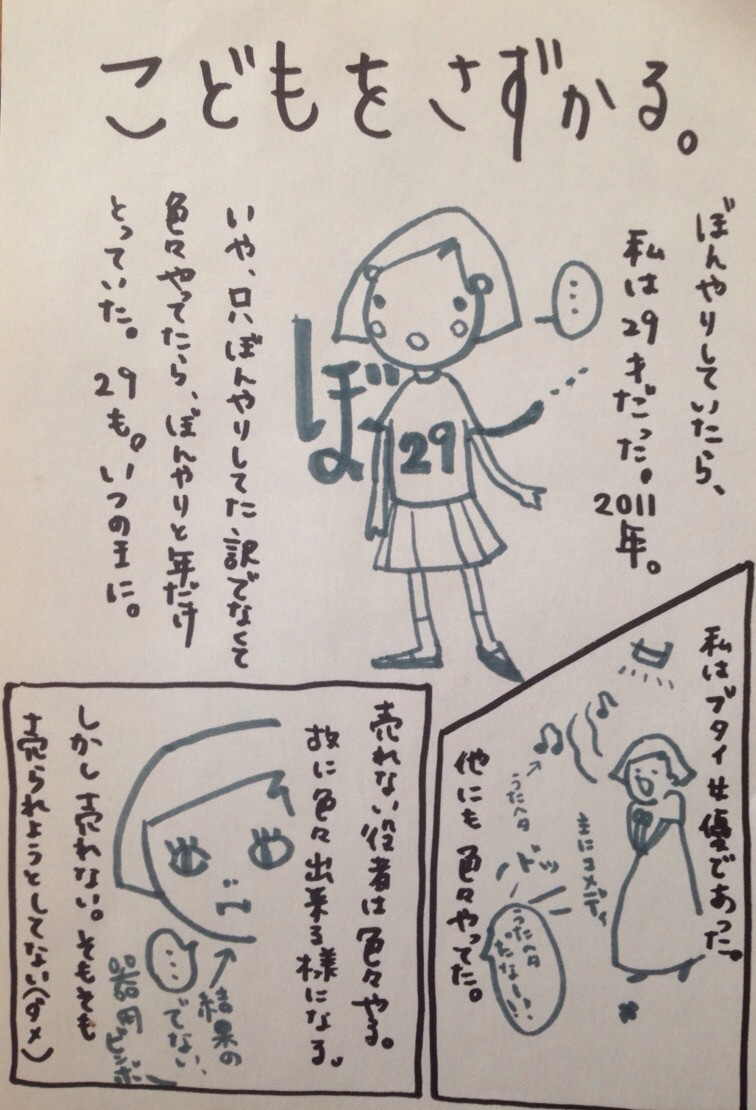 こどもをさずかる。
ぼんやりしていたら、
私は29才だった。2011年。
…
29
ぼ
いや、只ぼんやりしてた訳でなくて
色々やってたら、ぼんやりと年だけ
とっていた。29も。いつのまに。
私はブタイ女優であった。
主にコメディ
うたヘタ
ドッ
うたヘタだな〜!!
他にも色々やってた。
売れない役者は色々やる。
故に色々出来る様になる。
結果の
でない
器用ビンボー
…
しかし売れない。そもそも
売られようとしてない(ダメ)